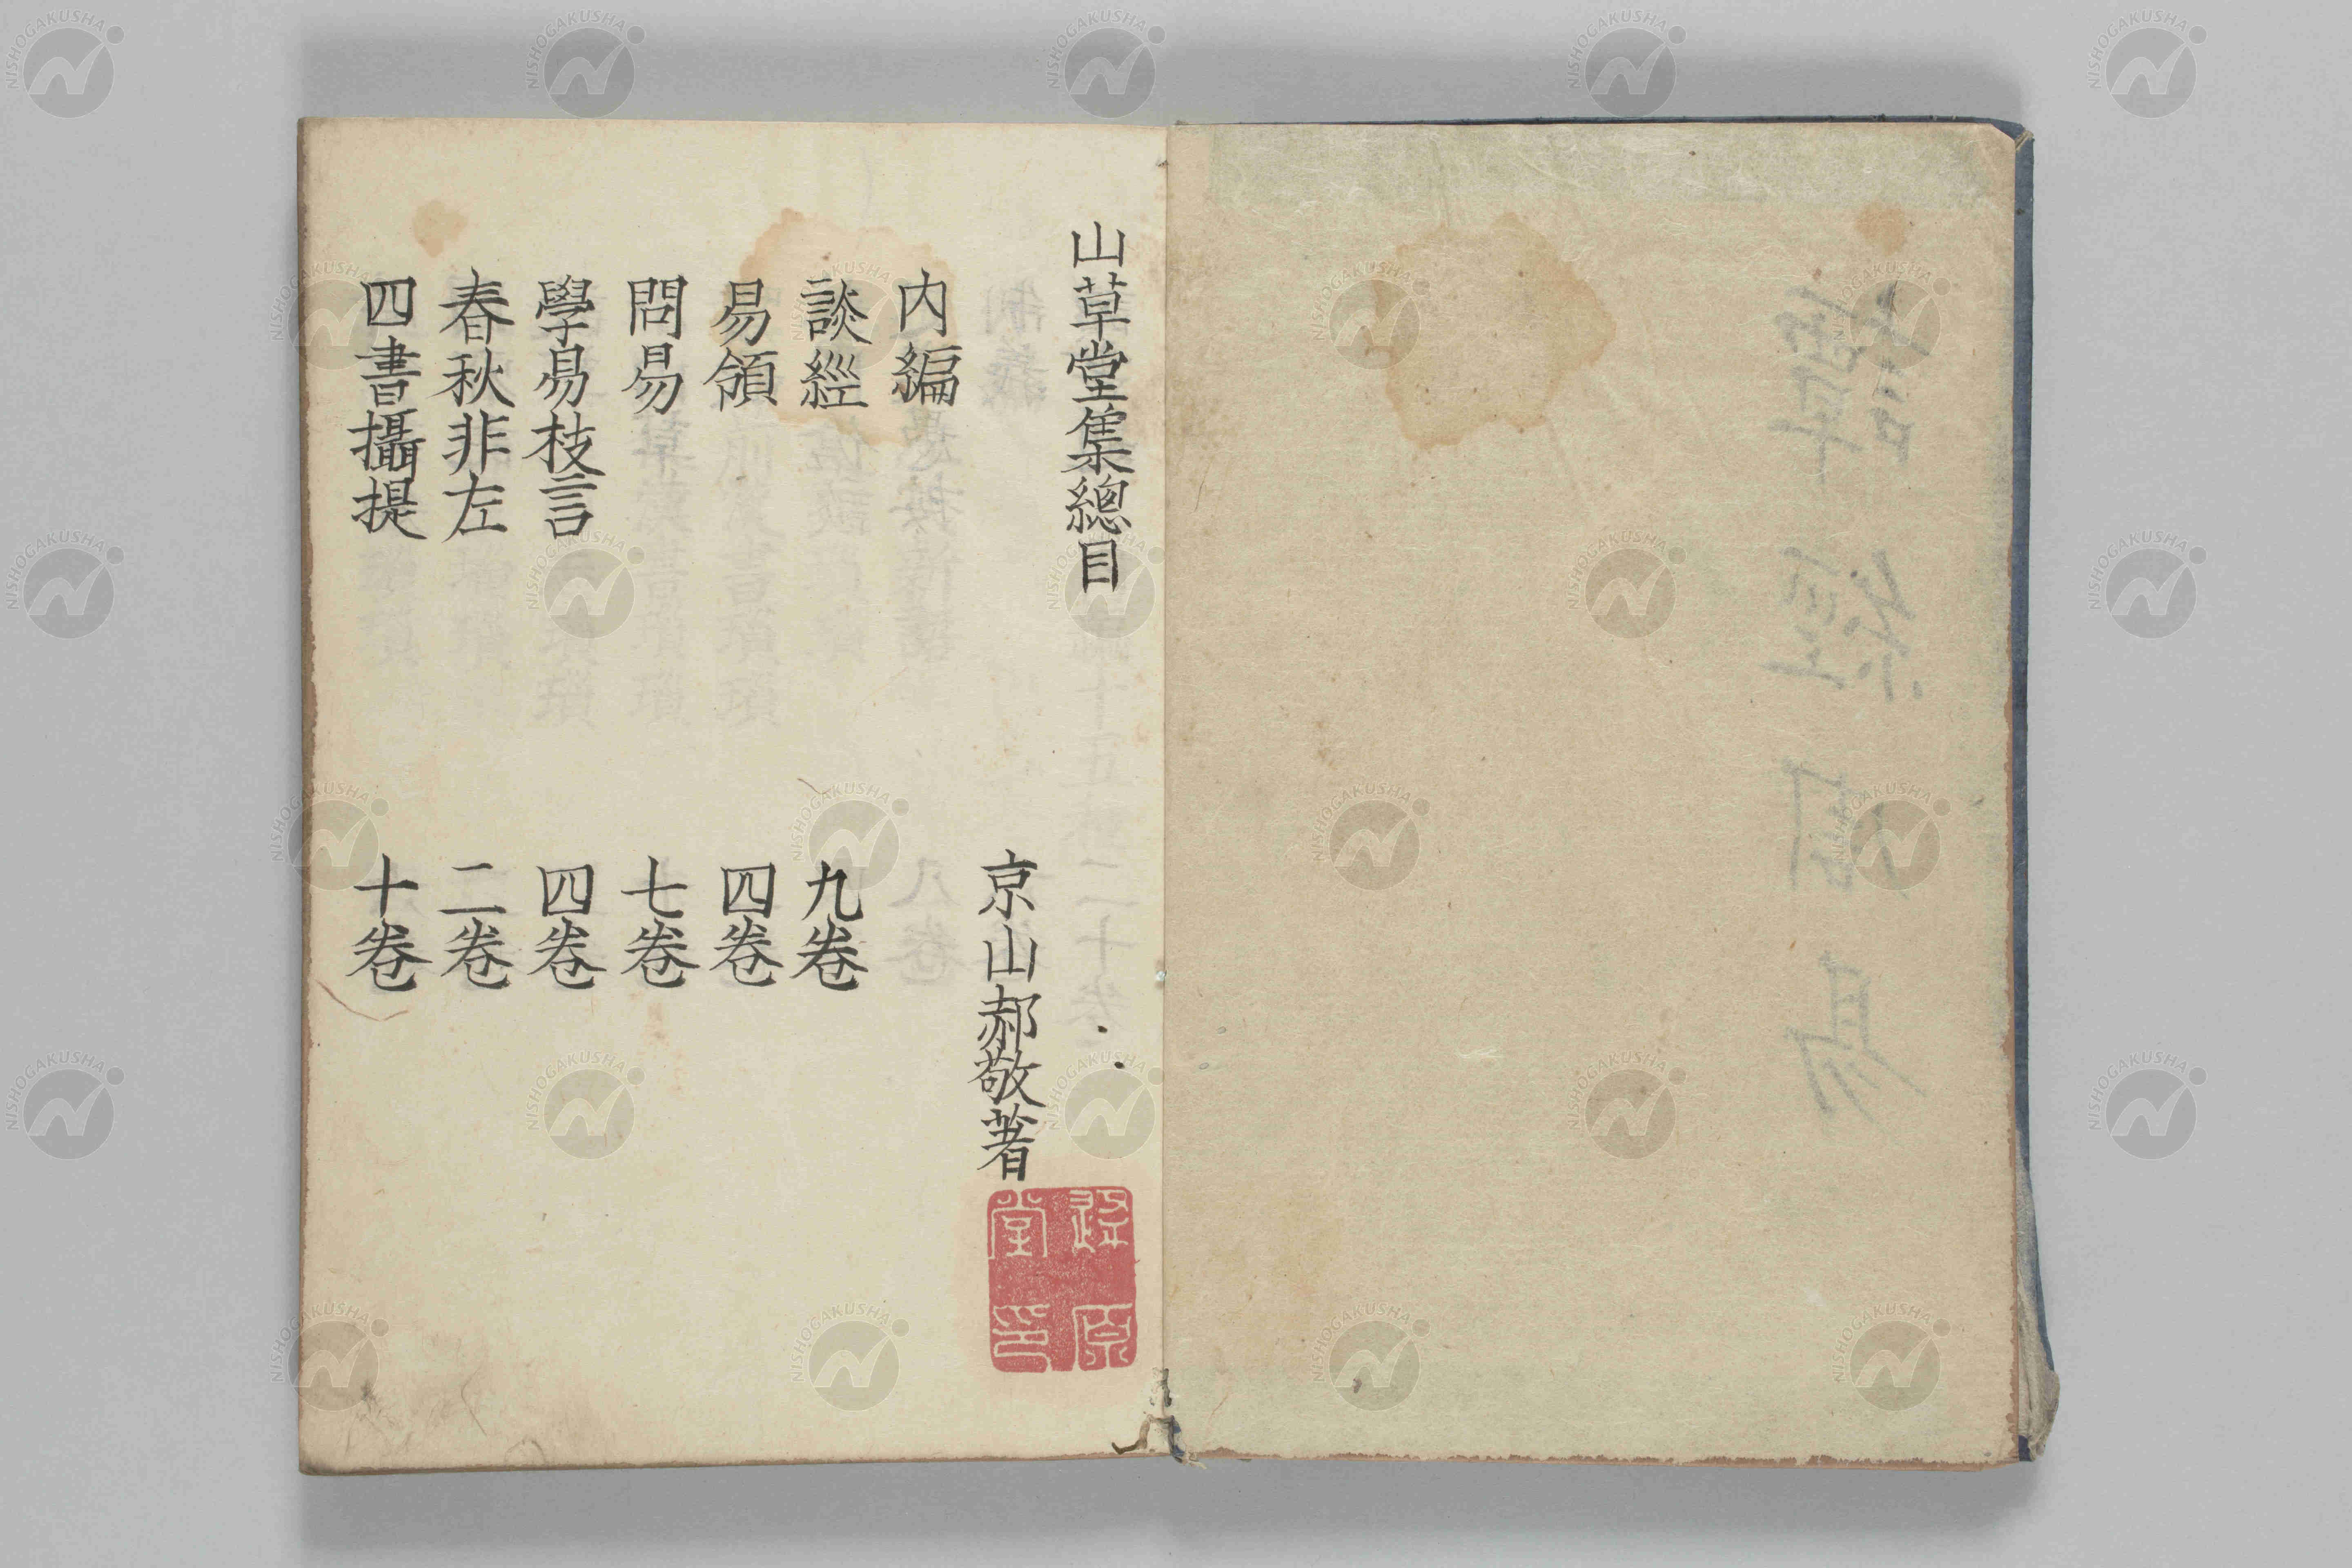 山草堂集總目
京山郝敬著
内編
談經 九卷
易領 四卷
問易 七卷
學易枝言 四卷
春秋非左 二卷
四書攝提 十卷
NISHOGAKUSHA